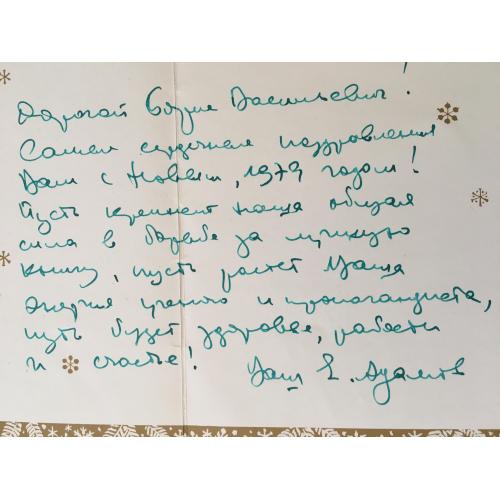 Дорогой Борис Васильевич!
Самые сердечные поздравления
Вам с Новым, 1979 годом!
Пусть крепнет наша общая
сила в борьбе за лучшую
книгу, пусть растет Ваша
энергия ученого и пропагандиста,
пусть будет здоровье, радости
и счастье!
Ваш Е.